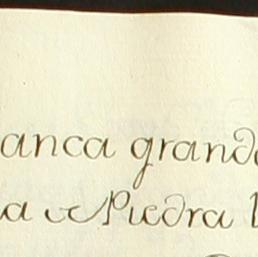 anca grand
a de Piedra